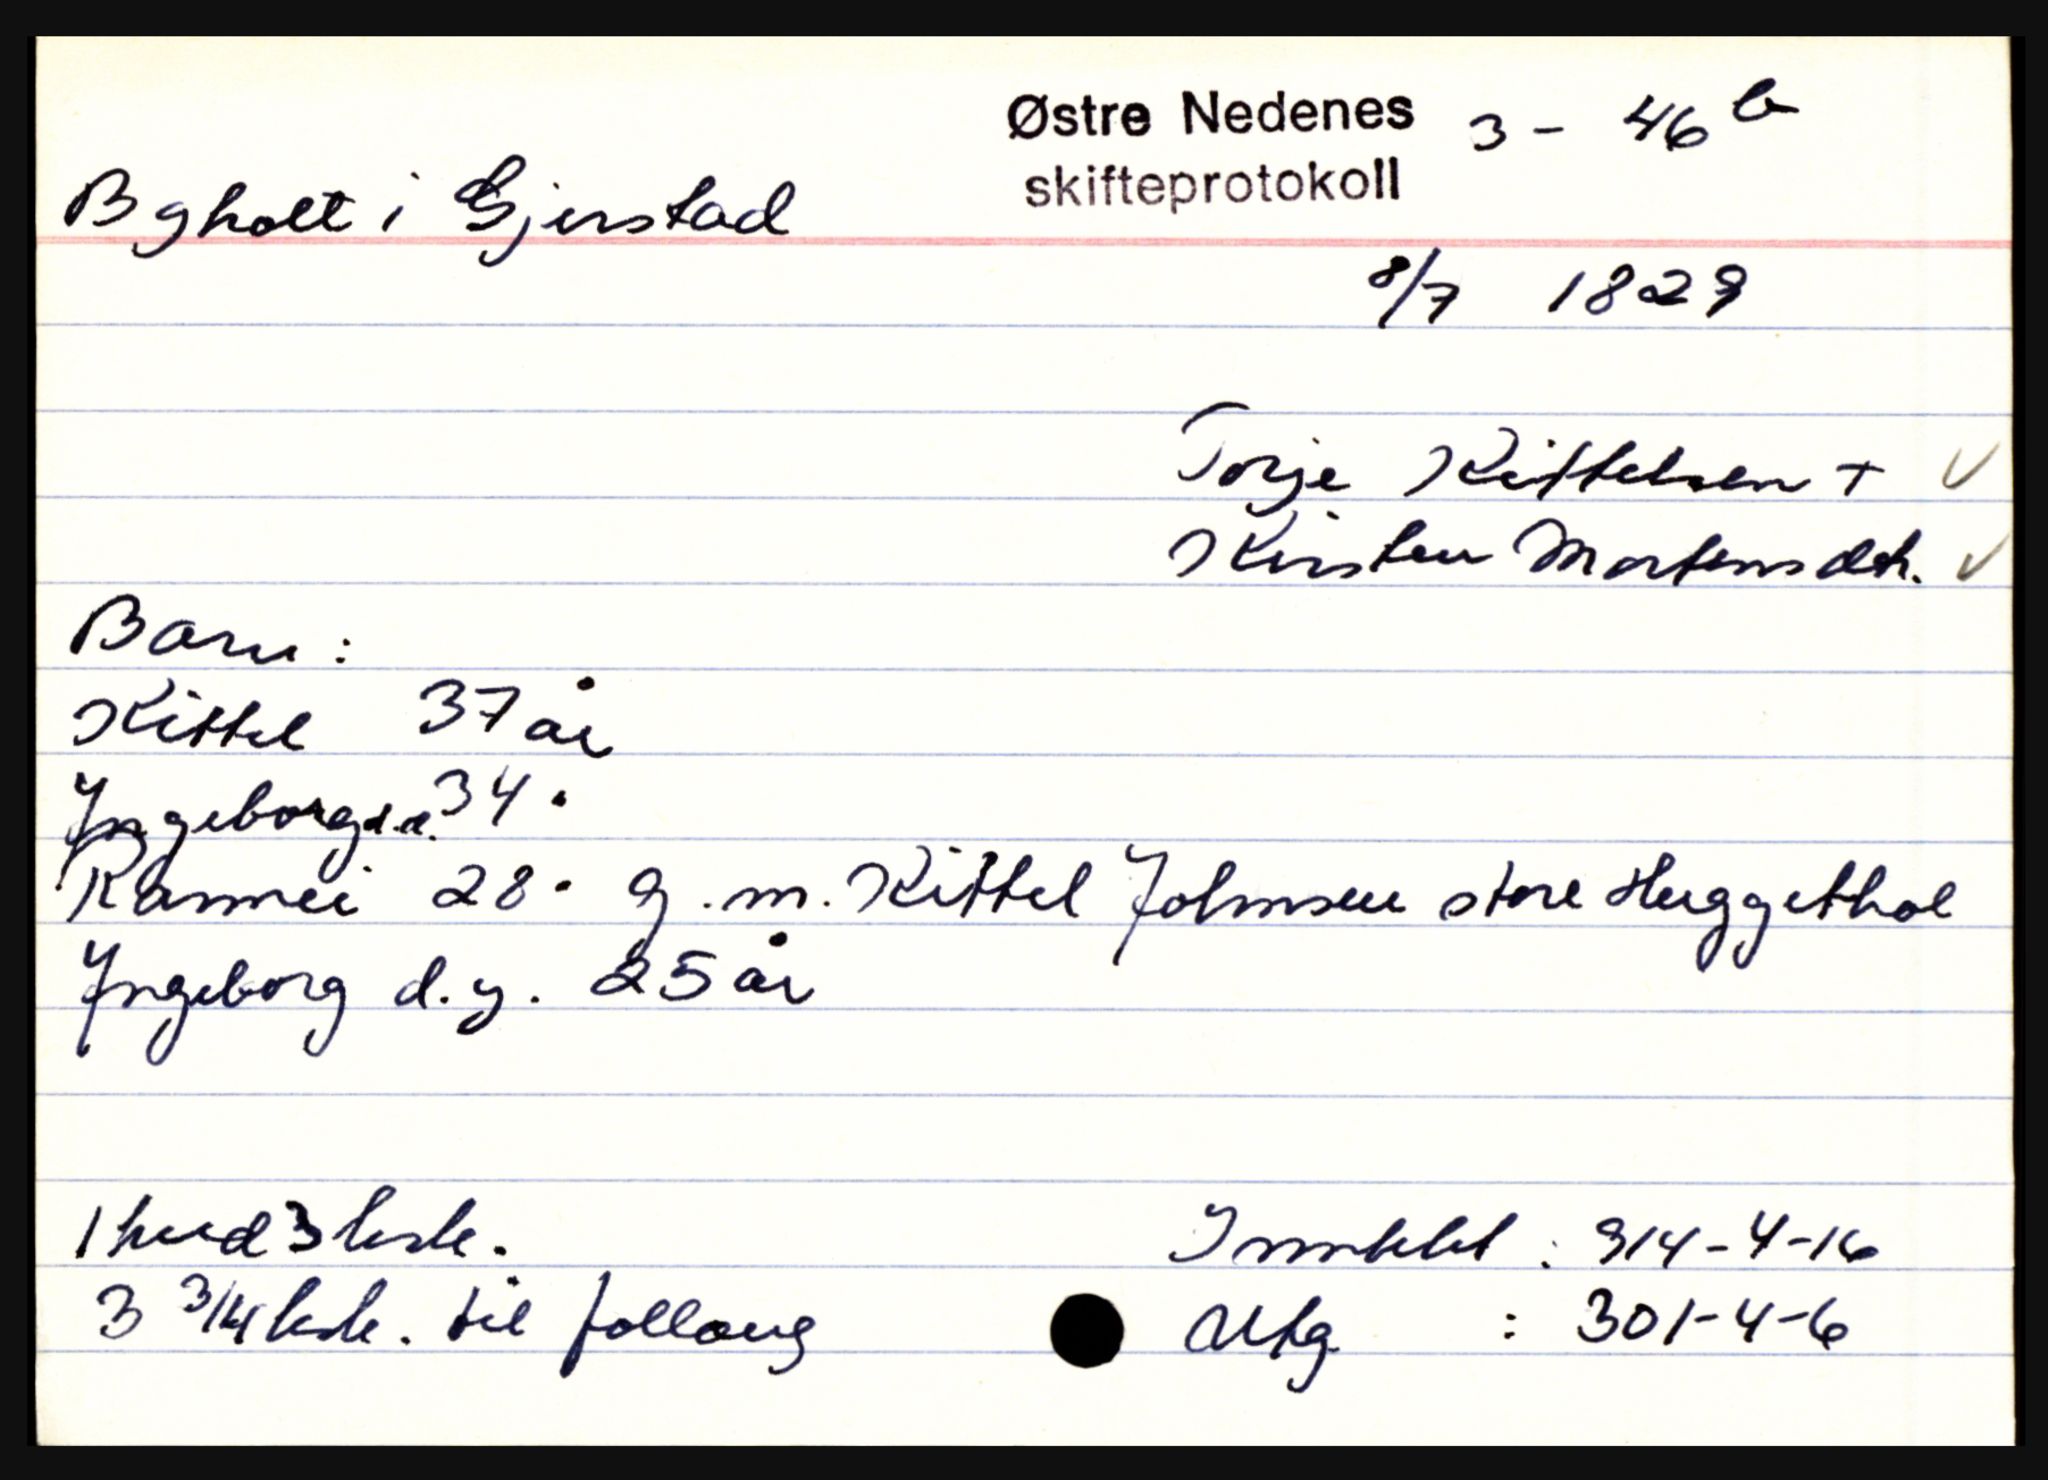 Østre Nedenes 3 - 46 b
skifteprotokoll
Bgholt i Gjerstad
8/7 1829
Torje Kittelsen +
Kirsten Mortensdtr.
Barn:
Kittel 37 år
Ingeborg d.e. 34 "
Rannei 28 " g.m. Kittel Johnsen store Huggethol
Ingeborg d.y. 25 år
1 hud 3 ksk.
3 3/4 ksk. til follaug
Inntekt : 914-4-16
Utg : 301-4-6